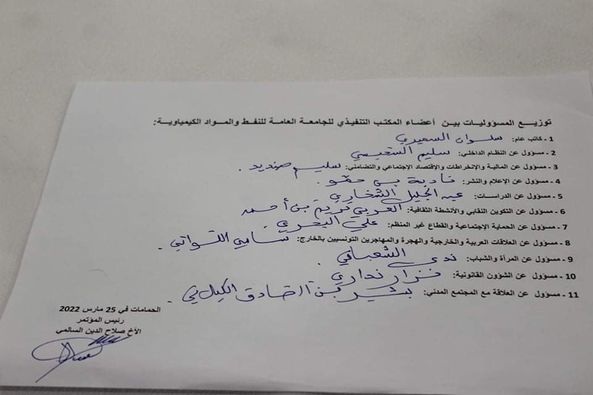 توزيع المسؤوليات بين أعضاء المكتب التنفيذي للجامعة العامة للنفط والمواد الكيمياوية:
1 - كاتب عام: سلوان السميري
2 - مسؤول عن النظام الداخلي: سليم
3 - مسؤول عن المالية والإنخراطات والإقتصاد الإجتماعي والتضامني: سليم
4 - مسؤول عن الإعلام والنشر: نادية بن حمو
5 - مسؤول عن الدراسات: عبد الجليل الشخاري
6 - مسؤول عن التكوين النقابي والأنشطة الثقافية: العربي كريم بن أحمد
7 - مسؤول عن الحماية الإجتماعية والقطاع غير المنظم: علي
8 - مسؤول عن العلاقات العربية والخارجية والهجرة والمهاجرين التونسيين بالخارج: سامي اللواتي
9 - مسؤول عن المرأة والشباب: ندى الشعباني
10 - مسؤول عن الشؤون القانونية: نزار نداري
11 - مسؤول عن العلاقة مع المجتمع المدني: بشير بن الصادق
الحمامات في 25 مارس 2022
رئيس المؤتمر
الأخ صلاح الدين السالمي